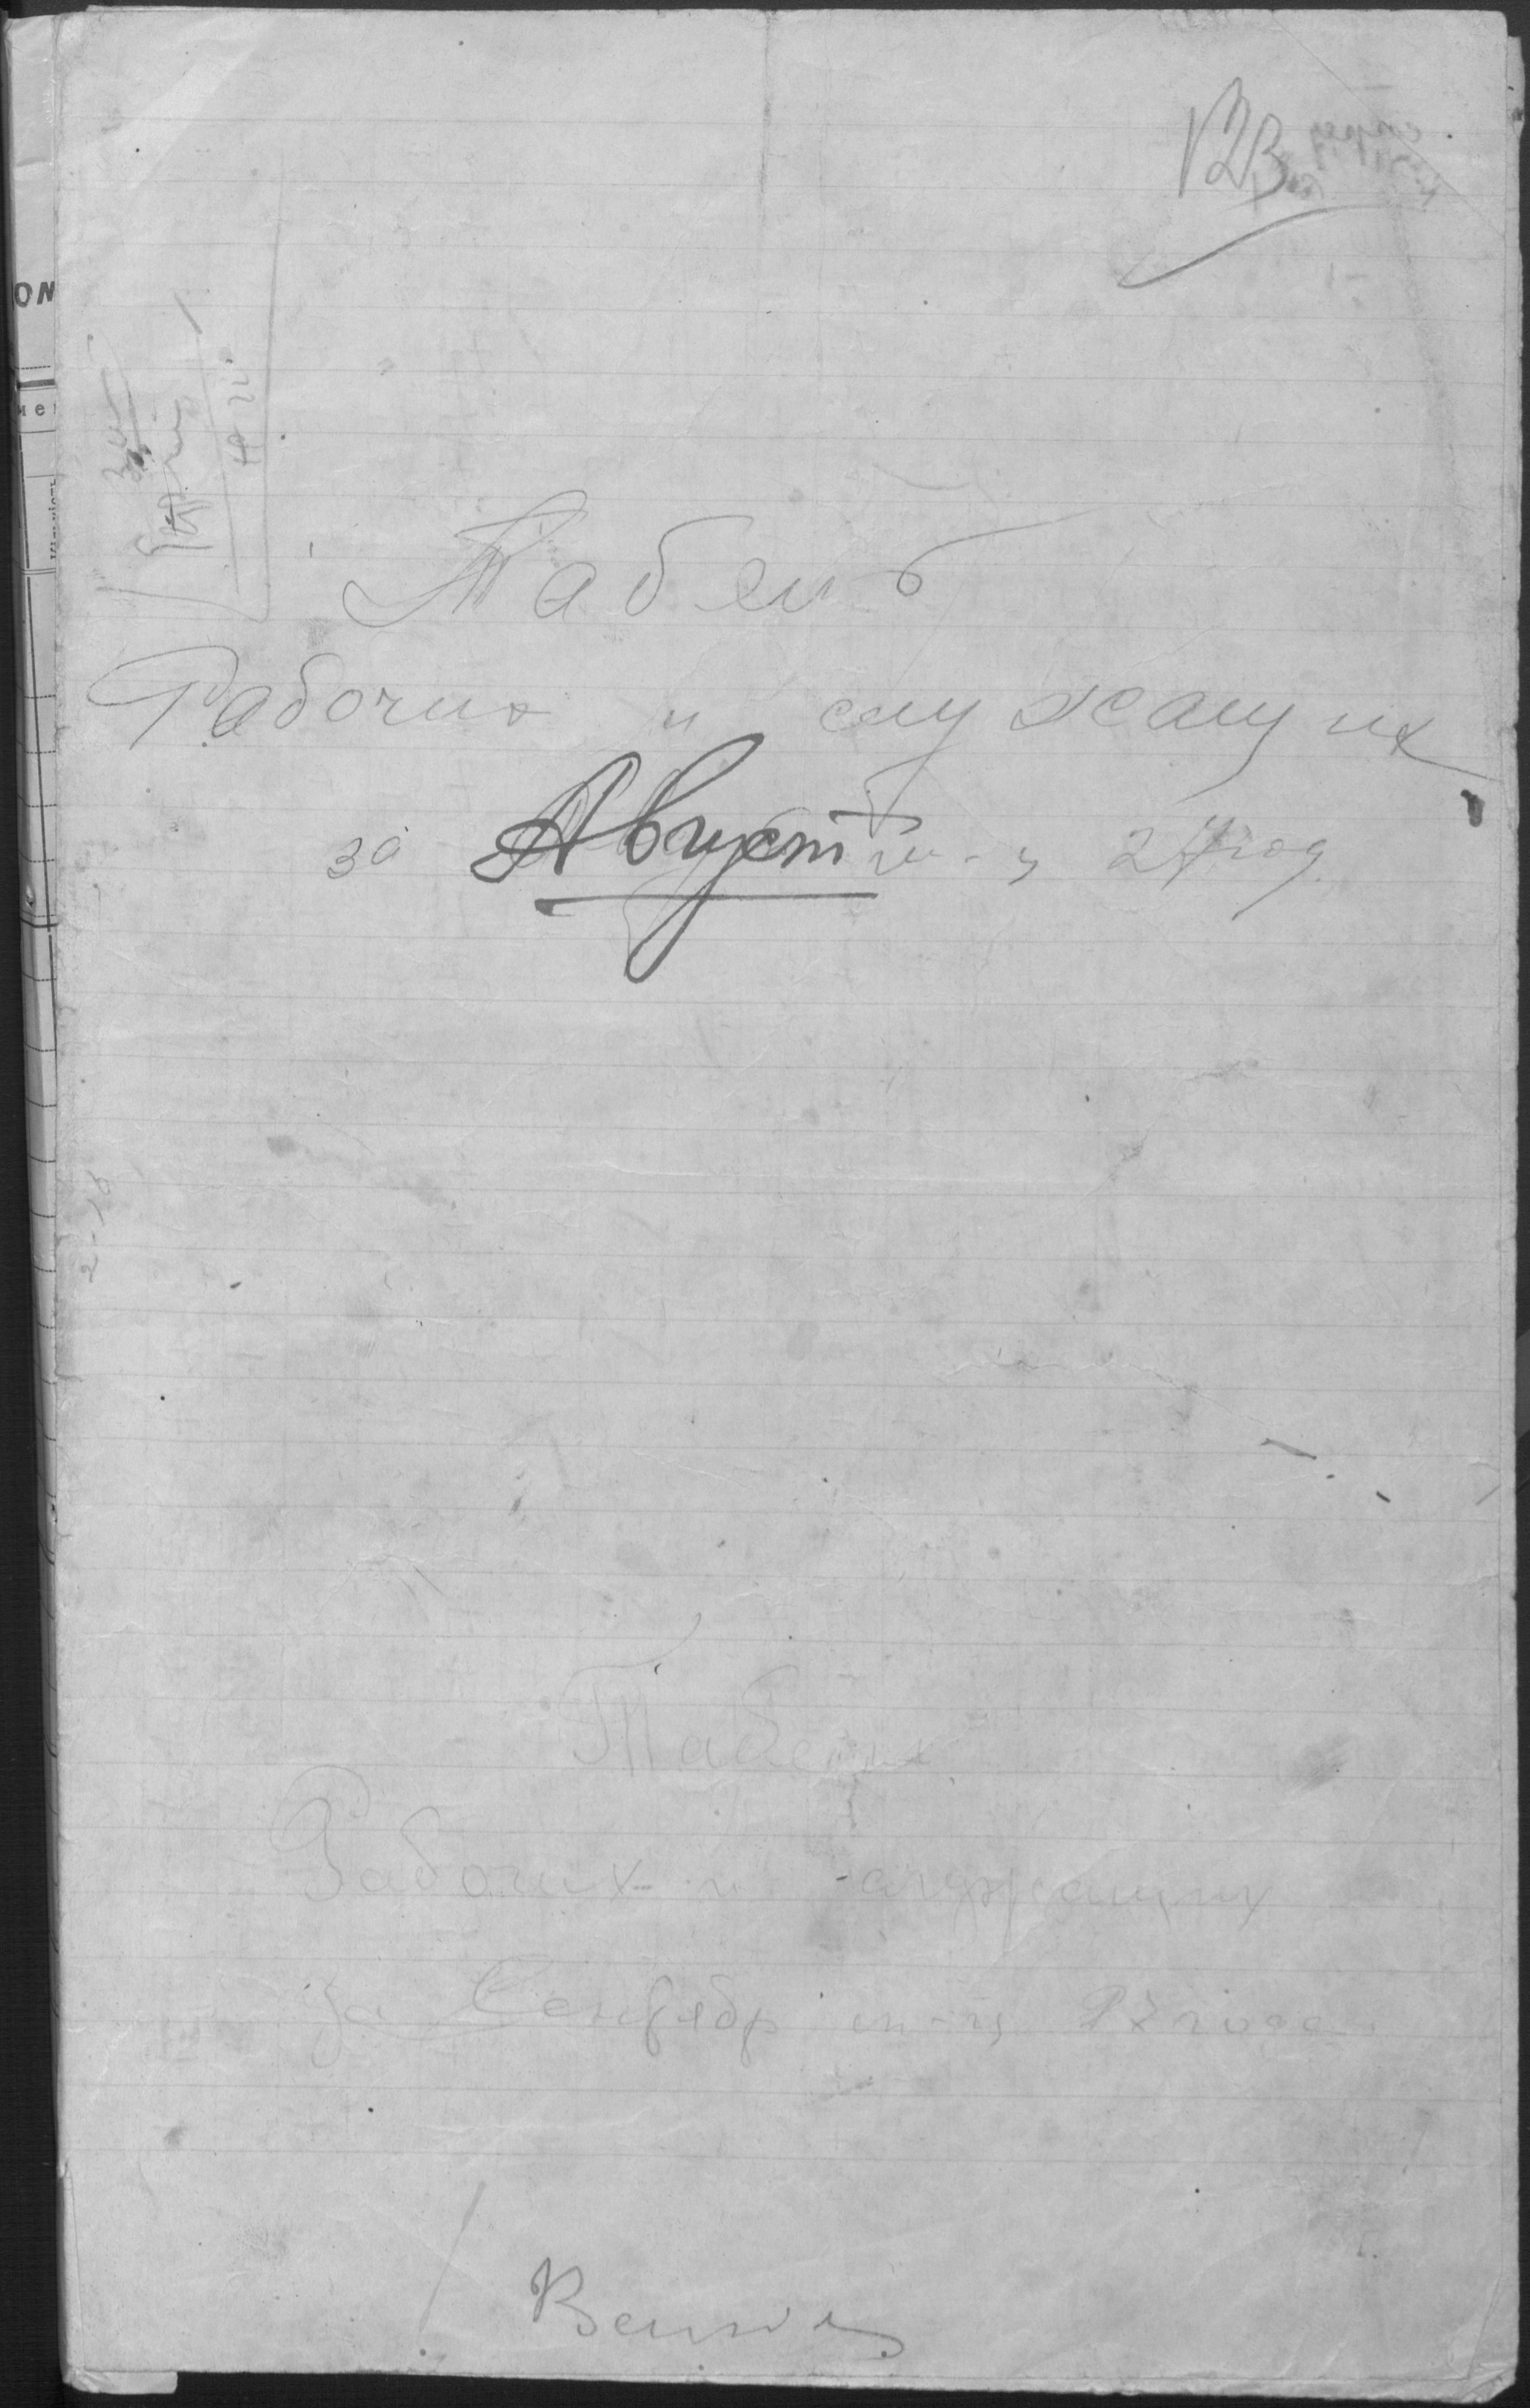 123
Табель
Рабочих и служащих
за Август м-ц 27 год
Табель
Рабочих и служащих
за Сентябр м-ц 27 года